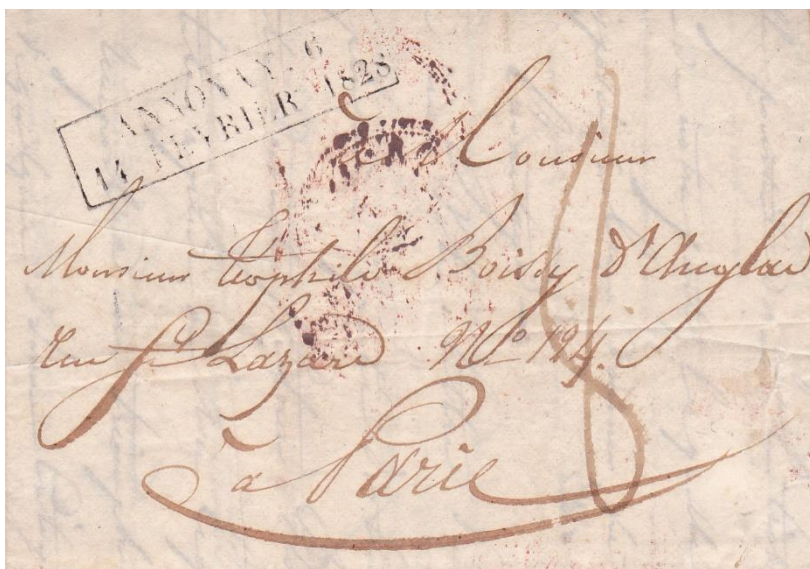 ANNONAY . 6
14 FEVRIER 1828
à Monsieur
Monsieur téophile Boissy d'Anglas
rue St Lazare No 194.
à Paris
8